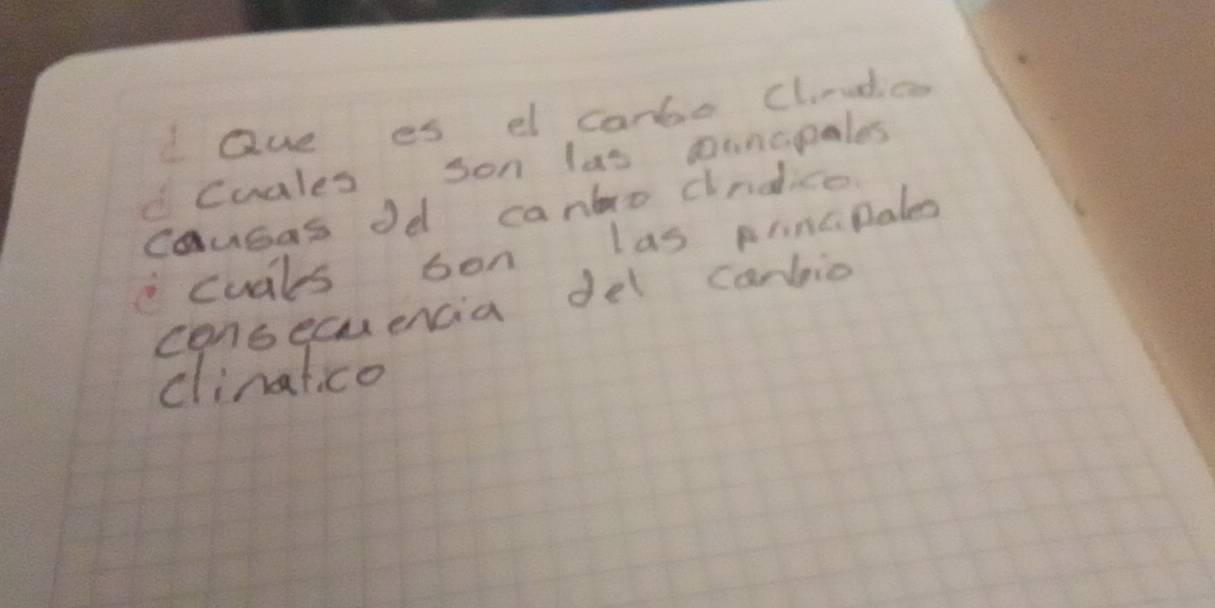 ¿ Que es el canbo climatico
¿ cuales son las principales
causas del canbio climatico.
¿ cuales son las principales
consecuencia del canbio
climatico